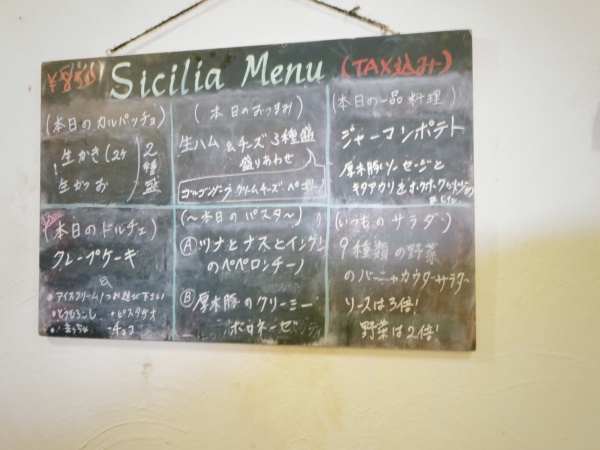 ¥850
Sicilia Menu
(TAX込み)
(本日のカルパッチョ)
生かき(2ケ
生かつお
2種盛
(本日のおつまみ)
生ハム &チーズ3種盛
盛りあわせ
ゴルゴンゾーラ クリームチーズ ペコリーノ
(本日の一品料理)
ジャーマンポテト
厚木豚ソーセージと
キタアカリを
(本日のドルチェ)
クレープケーキ
アイスクリーム1つお選び下さい
・とうもろこし ・ピスタチオ
・チョコ
(〜本日のパスタ〜)
Ⓐツナとナスとインゲン
のペペロンチーノ
Ⓑ厚木豚のクリーミー
ボロネーゼ
(いつものサラダ)
9種類の野菜
のバーニャカウダーサラダ
ソースは3倍!
野菜は2倍!